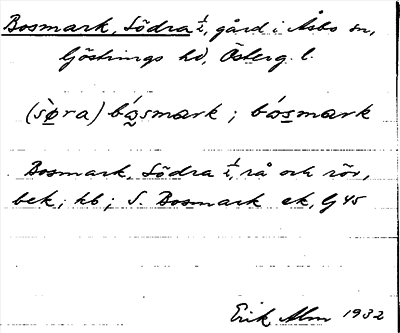 Bosmark, Södra ⅟, gård i Åsbo sn,
Göstrings hd, Österg. l.
(sø̀ra) básmark ; bósmark
Bosmark, Södra ⅟, rå och rör,
bek; hb; S. Bosmark ek, G 45
Erik Alm 1932